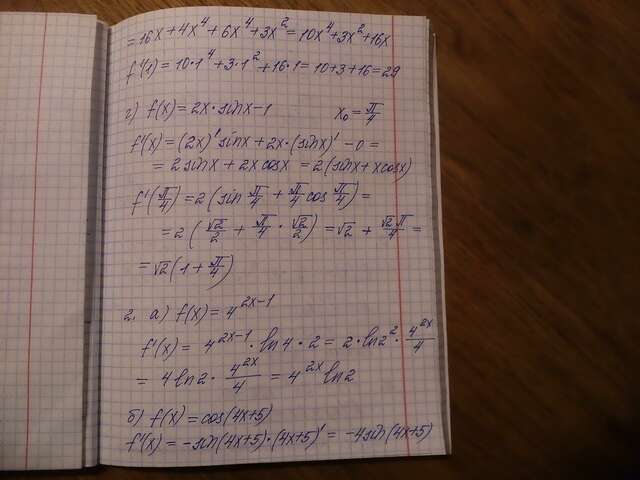 = 16x + 4x⁴ + 6x⁴ + 3x² = 10x⁴ + 3x² + 16x
f'(1) = 10·1⁴ + 3·1² + 16·1 = 10 + 3 + 16 = 29
г) f(x) = 2x · sinx - 1 x₀ = π/4
f'(x) = (2x)' sinx + 2x · (sinx)' - 0 =
= 2sinx + 2x cosx = 2(sinx + x cosx)
f'(π/4) = 2(sin π/4 + π/4 cos π/4) =
= 2(√2/2 + π/4 · √2/2) = √2 + √2π/4 =
= √2(1 + π/4)
2. а) f(x) = 4^(2x-1)
f'(x) = 4^(2x-1) · ln4 · 2 = 2 · ln2² · 4^(2x)/4
= 4ln2 · 4^(2x)/4 = 4^(2x) ln2
б) f(x) = cos(4x+5)
f'(x) = -sin(4x+5)·(4x+5)' = -4sin(4x+5)